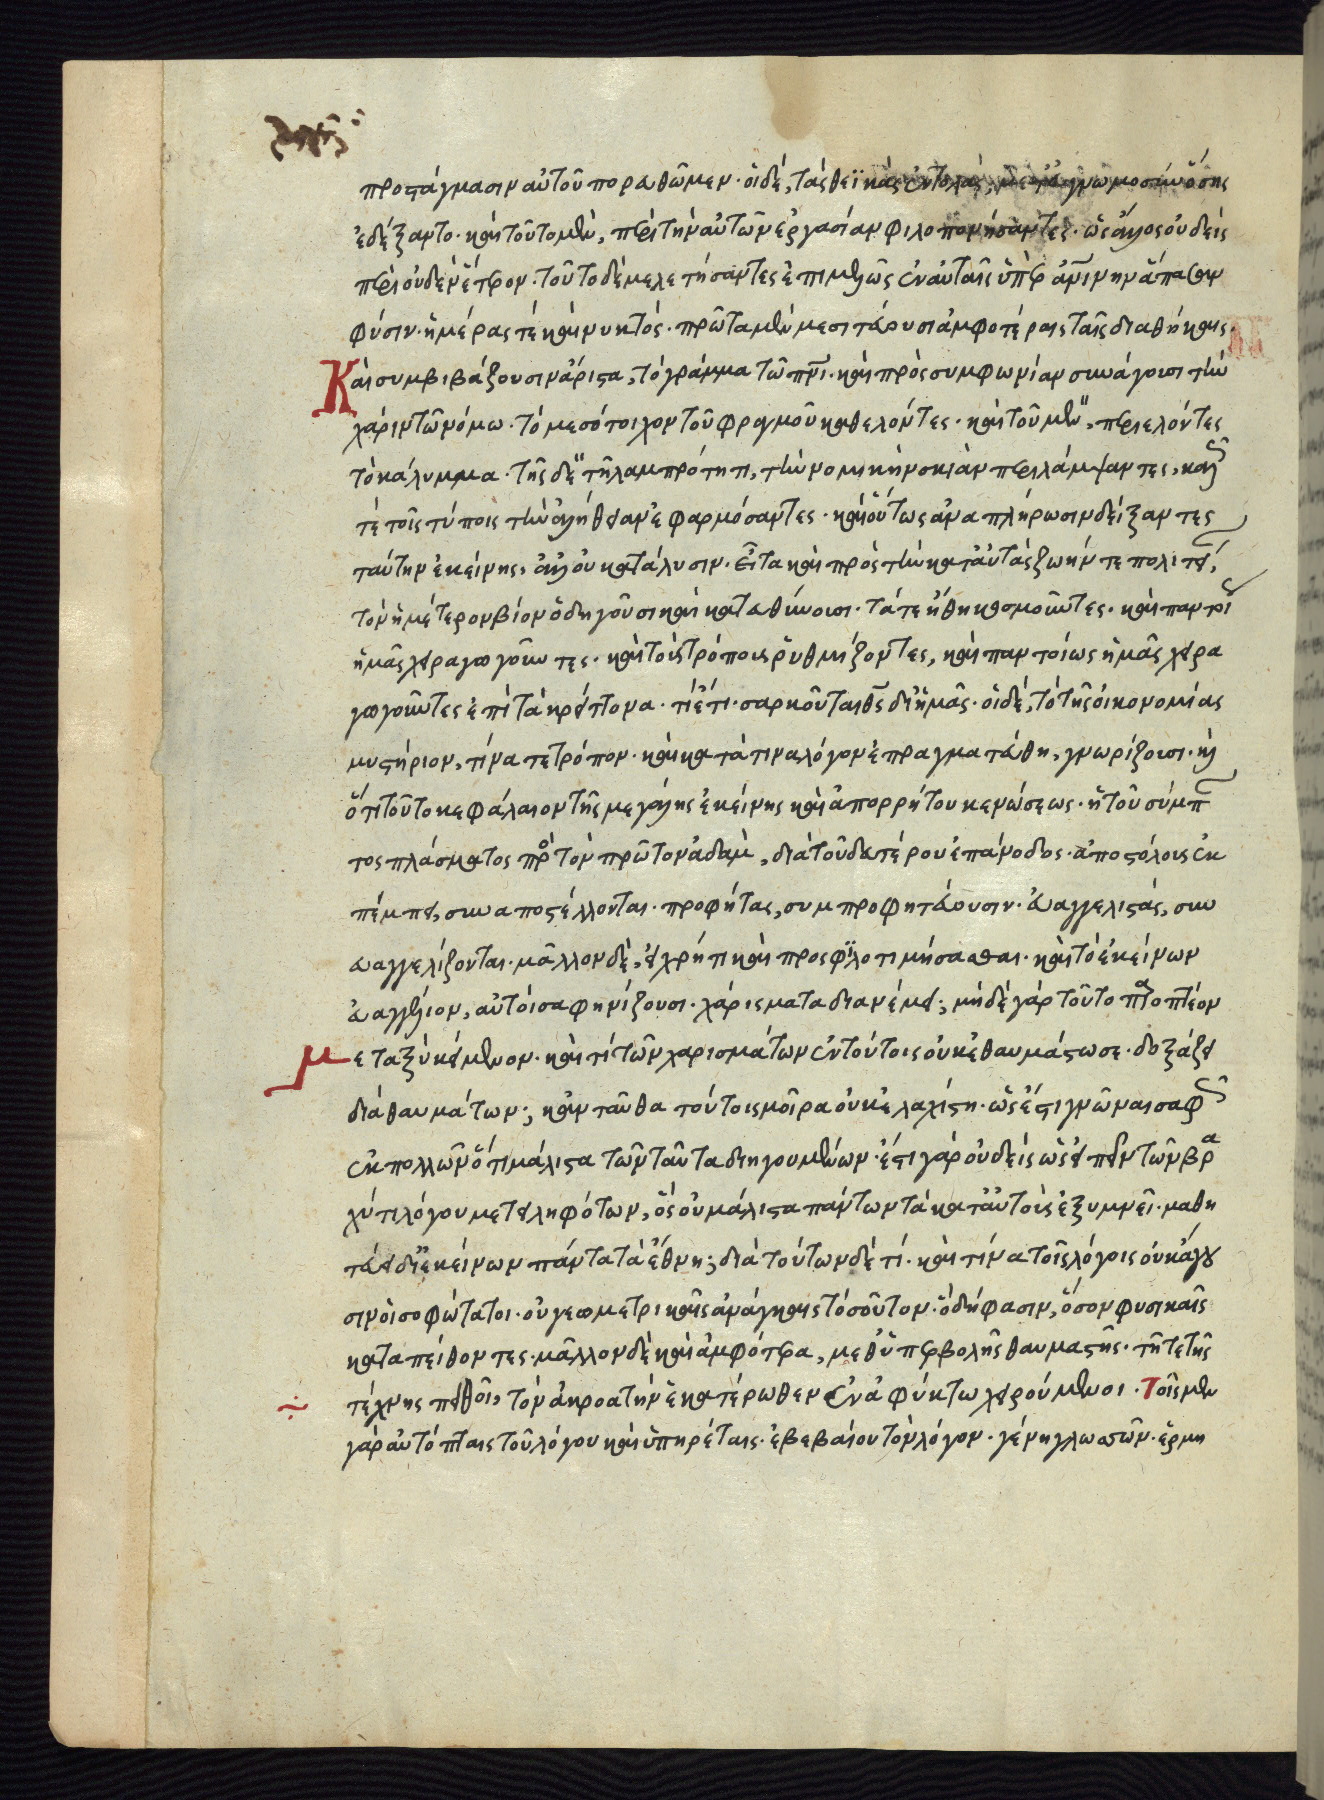 προστάγμασιν αὐτοῦ πορευθῶμεν· οἱ δέ, τὰς θεϊκὰς ἐντολάς, μετ᾽ εὐγνωμοσύνης ὅσης
ἐδέξαντο· καὶ τοῦτο μὲν, περὶ τὴν αὐτῶν ἐργασίαν φιλοπονήσαντες· ὡς ἄλλος οὐδεὶς
περὶ οὐδὲν ἕτερον· τοῦτο δὲ μελετήσαντες ἐπιμελῶς ἐν αὐταῖς ὑπὲρ ἀν̅ιν̅ην ἅπασαν
φύσιν· ἡμέρας τὲ καὶ νυκτός· πρῶτα μὲν μεσιτεύουσι ἀμφοτέραις ταῖς διαθήκαις·
Καὶ συμβιβάζουσιν ἄριστα, τὸ γράμμα τῶ πν̅ι· καὶ πρὸς συμφωνίαν συνάγουσι τὴν
χάριν τῶ νόμω· τὸ μεσότοιχον τοῦ φραγμοῦ καθελόντες· καὶ τοῦ μὲν, περιελόντες
τὸ κάλυμμα· τῆς δὲ τῆ λαμπρότητι, τὴν νομικὴν σκιὰν περιλάμψαντες, καλ
τὲ τοῖς τύποις τὴν ἀλήθειαν ἐφαρμόσαντες· καὶ οὕτως ἀναπλήρωσιν δείξαντες
ταύτην ἐκείνης, ἀλλ᾽ οὐ κατάλυσιν· εἶτα καὶ πρὸς τὴν κατ᾽ αὐτὰς ζωήν τε πολιτεί,
τὸν ἡμέτερον βίον ὁδηγοῦσι καὶ κατευθύνουσι· τά τε ἤθη κοσμοῦντες· καὶ παντοί
ἡμᾶς χειραγωγοῦντες· καὶ τοὺς τρόπους ῥυθμίζοντες, καὶ παντοίως ἡμᾶς χειρα
γωγοῦντες ἐπὶ τὰ κρείττονα· τί ἔτι· σαρκοῦται θς̅ δι᾽ ἡμᾶς· οἱ δέ, τὸ τῆς οἰκονομίας
μυστήριον, τίνα τε τρόπον· καὶ κατὰ τίνα λόγον ἐπραγματεύθη, γνωρίζουσι· κ
ὅτι τοῦτο κεφάλαιον τῆς μεγάλης ἐκείνης καὶ ἀπορρήτου κενώσεως· ἡ τοῦ σύμπ
τος πλάσματος πρὸ τὸν πρῶτον ἀδαμ, διὰ τοῦ δευτέρου ἐπάνοδος· ἀποστόλους ἐκ
πέμπει, συναποστέλλονται· προφήτας, συμπροφητεύουσιν· εὐαγγελιστάς, συν
ευαγγελίζονται· μᾶλλον δὲ, εἰ χρή τι καὶ προσφιλοτιμήσασθαι· καὶ τὸ ἐκείνων
εὐαγγέλιον, αὐτοὶ σαφηνίζουσι· χάρισματα διανέμει; μηδὲ γὰρ τοῦτο παροπτέον
μεταξὺ κείμενον· καὶ τί τῶν χαρισμάτων ἐν τούτοις οὐκ ἐθαυμάστωσε· δοξάζει
διὰ θαυμάτων; κἀνταῦθα τούτοις μοῖρα οὐκ ἐλαχίστη· ὡς ἔστι γνῶναι σαφ
ἐκ πολλῶν ὅτι μάλιστα τῶν ταῦτα διηγουμένων· ἔστι γὰρ οὐδεὶς ὡς εἰπεῖν τῶν βρα
χύ τι λόγου μετειληφότων, ὃς οὐ μάλιστα πάντων τὰ κατ᾽ αὐτοὺς ἐξυμνεῖ· μαθη
τεύει δι᾽ ἐκείνων πάντα τὰ ἔθνη; διὰ τούτων δὲ τί· καὶ τίνα τοῖς λόγοις οὐκ ἄγου
σιν οἱ σοφώτατοι· οὐ γεωμετρικαῖς ἀνάγκαις τοσοῦτον· ὃ δή φασιν, ὅσον φυσικαῖς
καταπείθοντες· μᾶλλον δὲ καὶ ἀμφότερα, μεθ᾽ ὑπερβολῆς θαυμαστῆς· τῆ τε τῆς
τέχνης πειθοῖ, τὸν ἀκροατὴν ἑκατέρωθεν ἐν ἀφύκτω χειρούμενοι· Τοῖς μὲν
γὰρ αὐτόπταις τοῦ λόγου καὶ ὑπηρέταις· ἐβεβαίου τὸν λόγον· γένη γλωσσῶν· ἑρμη